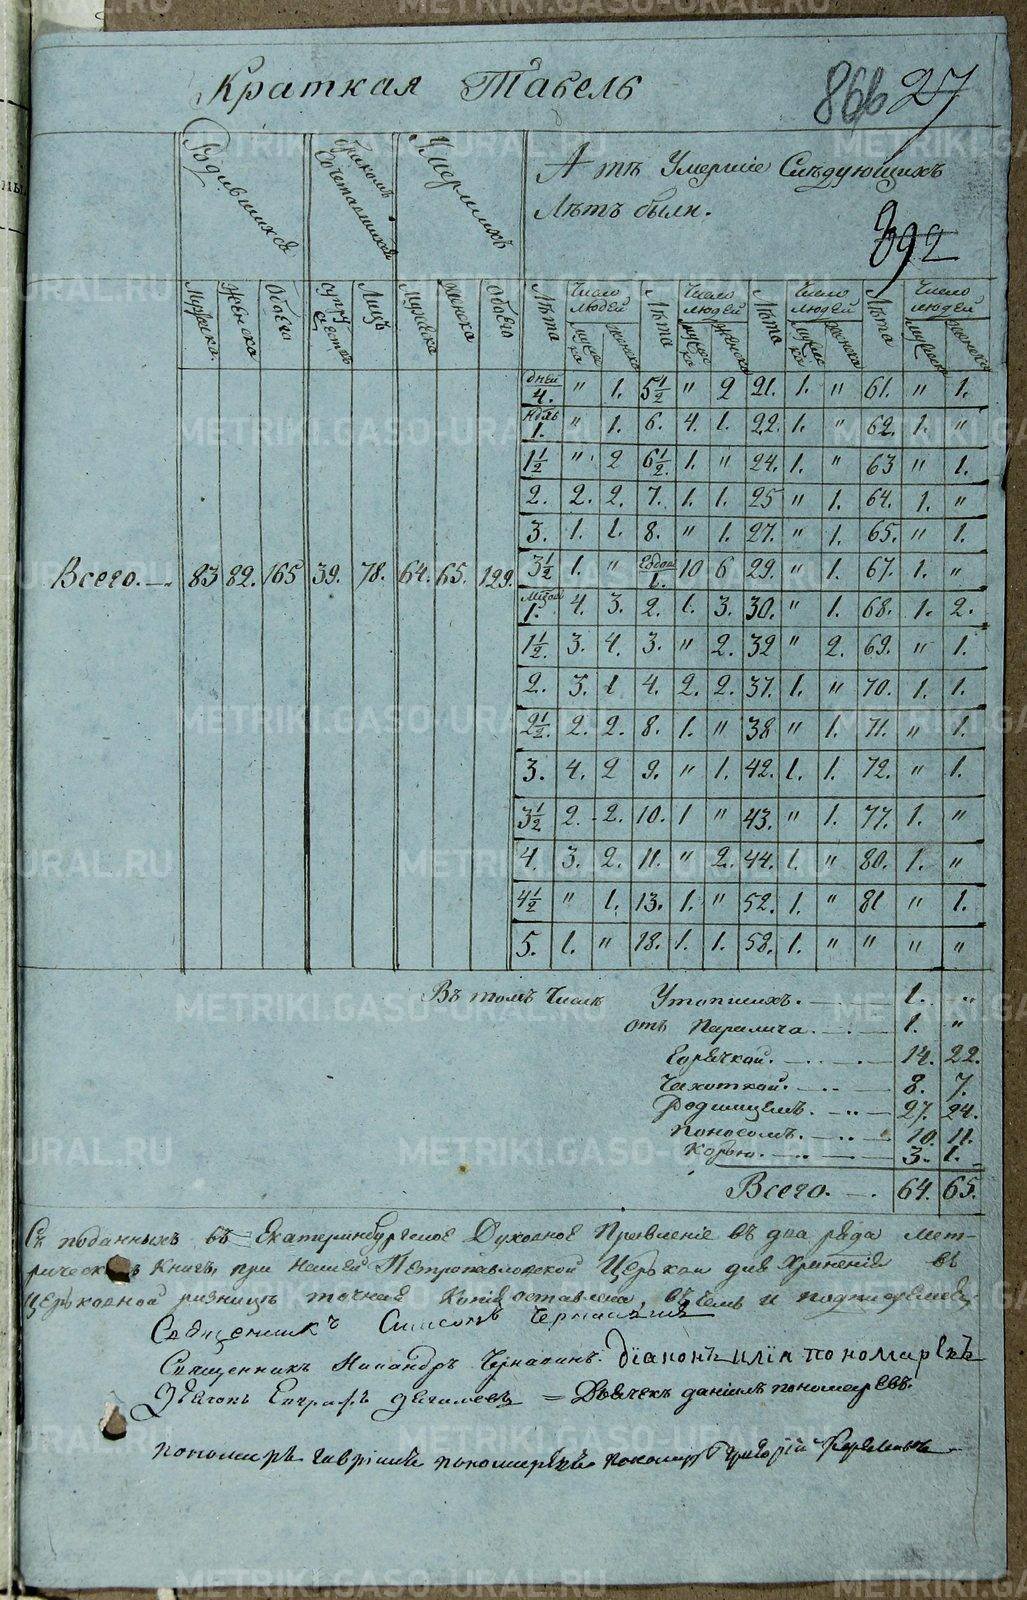 Краткая Табель
866 27
Родившихся
Бракомъ Сочетавшихся
Умершихъ
А тѣ Умершіе Слѣдующихъ
Лѣтъ были.
392
Мужеска. Женска Обоего супружествъ Лицъ Мужеска Женска Обоего Лѣта Число людей Лѣта Число людей Лѣта Число людей Лѣта Число людей
мужеска женска мужеска женска мужеска женска мужеска женска
дней 4. " 1. 5½ " 2 21. 1. " 61. " 1.
1. " 1. 6. 4. 1. 22. 1. " 62. 1. "
1½ " 2 6½ 1. " 24. 1. " 63 " 1.
2. 2. 2. 7. 1. 1. 25 " 1. 64. 1. "
3. 1. 1. 8. " 1. 27. " 1. 65. " 1.
Всего. 83 82. 165 39. 78. 64. 65. 129. 3½ 1. " 1. 10 6 29. " 1. 67. 1. "
1. 4. 3. 2. 1. 3. 30. " 1. 68. 1. 2.
1½. 3. 4. 3. " 2. 32 " 2. 69. " 1.
2. 3. 1 4. 2. 2. 37. 1. " 70. 1. 1.
2½. 2. 2. 8. 1. " 38 " 1. 71. " 1.
3. 4. 2 9. " 1. 42. 1. 1. 72. " 1.
3½ 2. 2. 10. 1 " 43. " 1. 77. 1. "
4. 3. 2. 11. " 2. 44. 1. " 80. 1. "
4½ " 1. 13. 1. " 52. 1. " 81 " 1.
5. 1. " 18. 1. 1. 58. 1. " " " "
Въ томъ Числѣ Утопшихъ. 1. "
отъ Паралича. 1. "
Горячкой. 14. 22.
Чахоткой. 8. 7.
Родимцемъ. 27. 24.
Поносомъ. 10. 11.
Корью. 3. 1.
Всего. 64. 65.
Съ поданныхъ въ Екатеринбургское Духовное Правленіе въ два ряда Мет-
рическихъ Книгъ, при Нашей Петропавловской Церкви для Храненія въ
Церковной ризницѣ точная Копія оставлена, въ чемъ и подписуемся,
Священникъ Симеонъ
Священникъ Никандръ діаконъ илія пономаревъ
Діаконъ Евграфъ = Дьячекъ даніилъ пономаревъ.
пономарь гавріилъ пономаревъ пономарь Григорій
METRIKI.GASO-URAL.RU